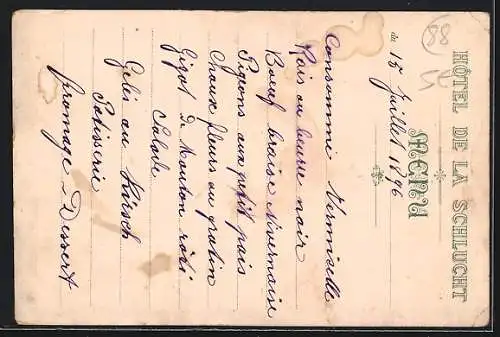 88
5e
HÔTEL DE LA SCHLUCHT
MENU
du 15 Juillet 1896
Consommé Vermiselle
Rais au beurre noir
Bœuf braisé Nivernaise
Pigeons aux petit pais
Choux fleurs au gratin
Gigot de Mouton rôti
Salade
Gelés au Kirsch
Patisserie
fromage - Dessert